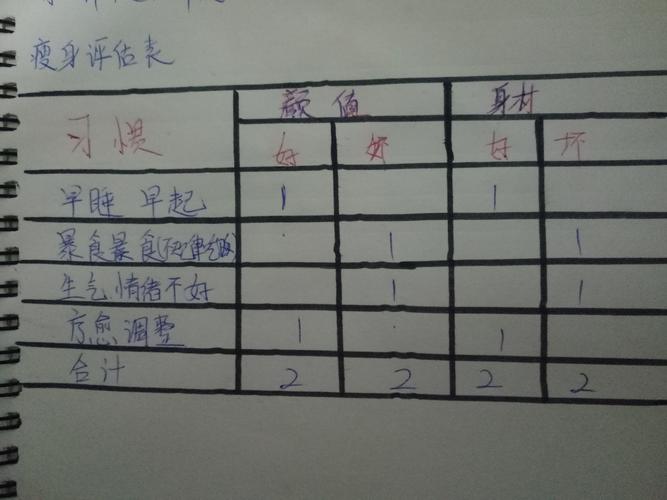 瘦身评估表
颜值 身材
习惯 好 坏 好 坏
早睡早起 1 1
暴食暴食 1 1
生气情绪不好 1 1
疗愈调整 1 1
合计 2 2 2 2